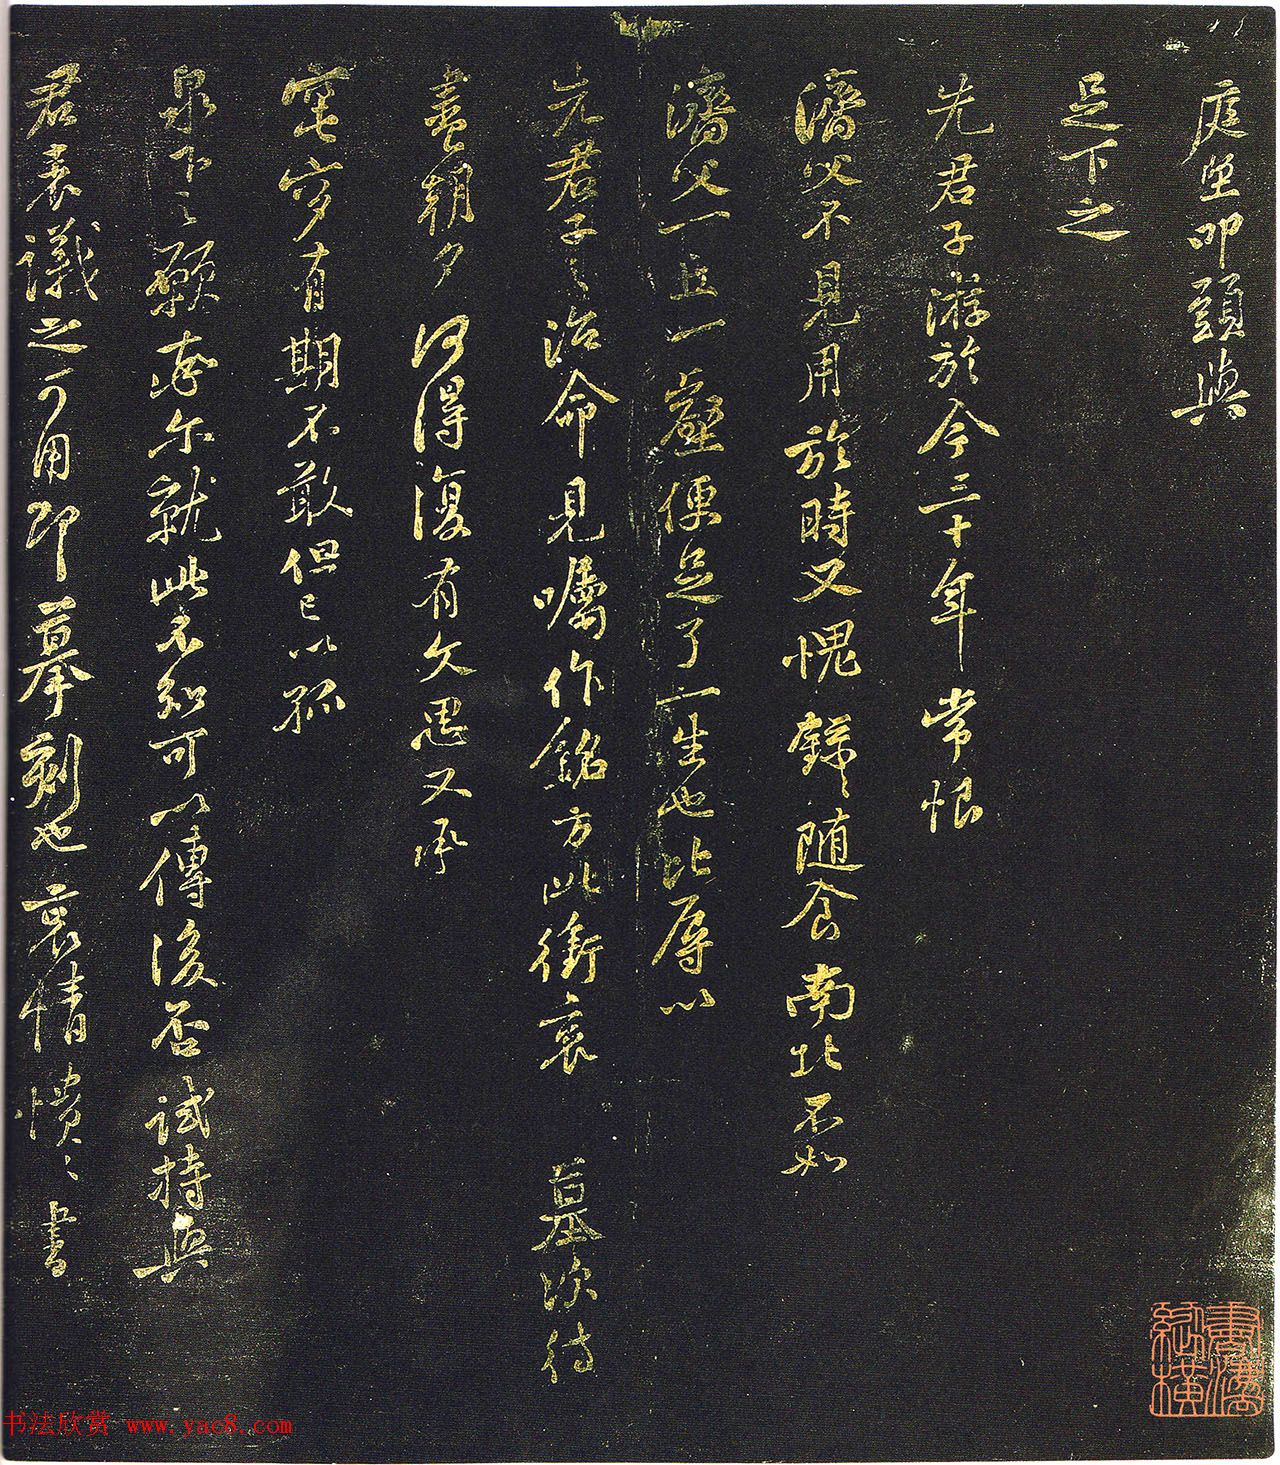 庭堅叩頭與
足下之
先君子游於今三十年常恨
濟父不見用於時又愧録録随食南北不如
濟父一丘一壑便足了一生也比辱以
先君子之治命見囑作銘方此銜哀墓次待
盡朝夕何得復有文思又承
窀穸有期不敢但已以孤
泉下之願存尔就此不知可以傳後否試持與
君素議之可用即摹刻也哀情憒憒書
书法欣赏 www.yac8.com